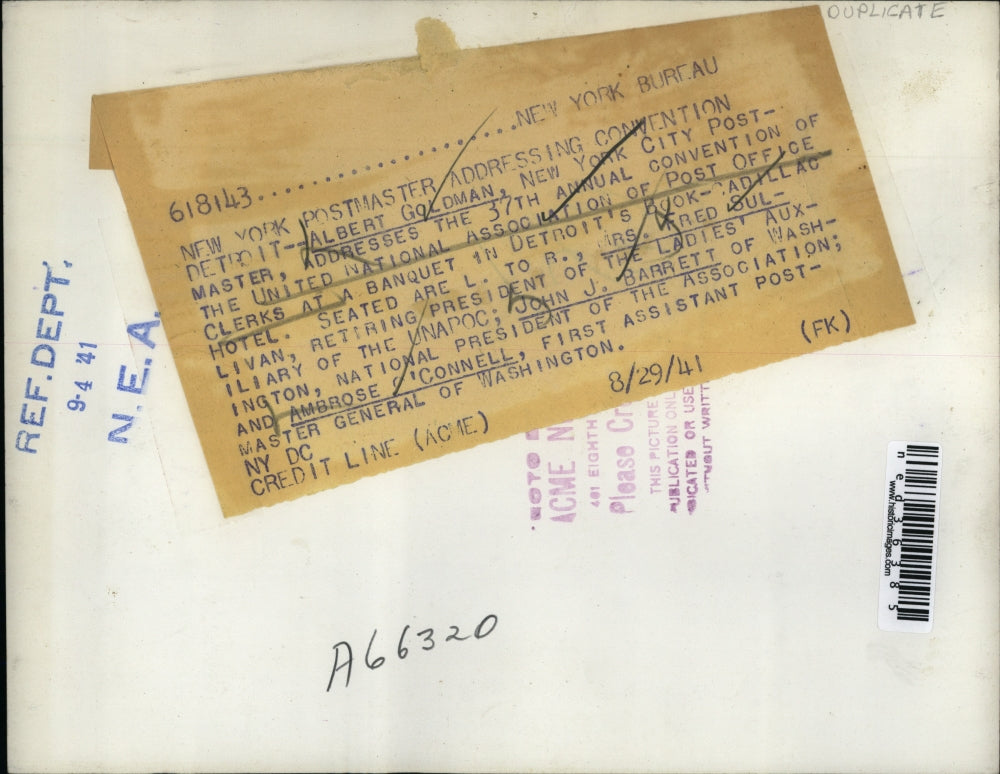 DUPLICATE
618143....................NEW YORK BUREAU
NEW YORK POSTMASTER ADDRESSING CONVENTION
DETROIT--ALBERT GOLDMAN, NEW YORK CITY POST-
MASTER, ADDRESSES THE 37TH ANNUAL CONVENTION OF
THE UNITED NATIONAL ASSOCIATION OF POST OFFICE
CLERKS AT A BANQUET IN DETROIT'S BOOK-CADILLAC
HOTEL. SEATED ARE L. TO R., MRS. FRED SUL-
LIVAN, RETIRING PRESIDENT OF THE LADIES' AUX-
ILIARY OF THE UNAPOC; JOHN J. BARRETT OF WASH-
INGTON, NATIONAL PRESIDENT OF THE ASSOCIATION;
AND AMBROSE O'CONNELL, FIRST ASSISTANT POST-
MASTER GENERAL OF WASHINGTON.
NY DC 8/29/41 (FK)
CREDIT LINE (ACME)
REF. DEPT.
9-4 '41
N.E.A.
ACME
401 EIGHTH
Please
THIS PICTURE
PUBLICATION
OR USE
A66320
ned36385
www.historicimages.com